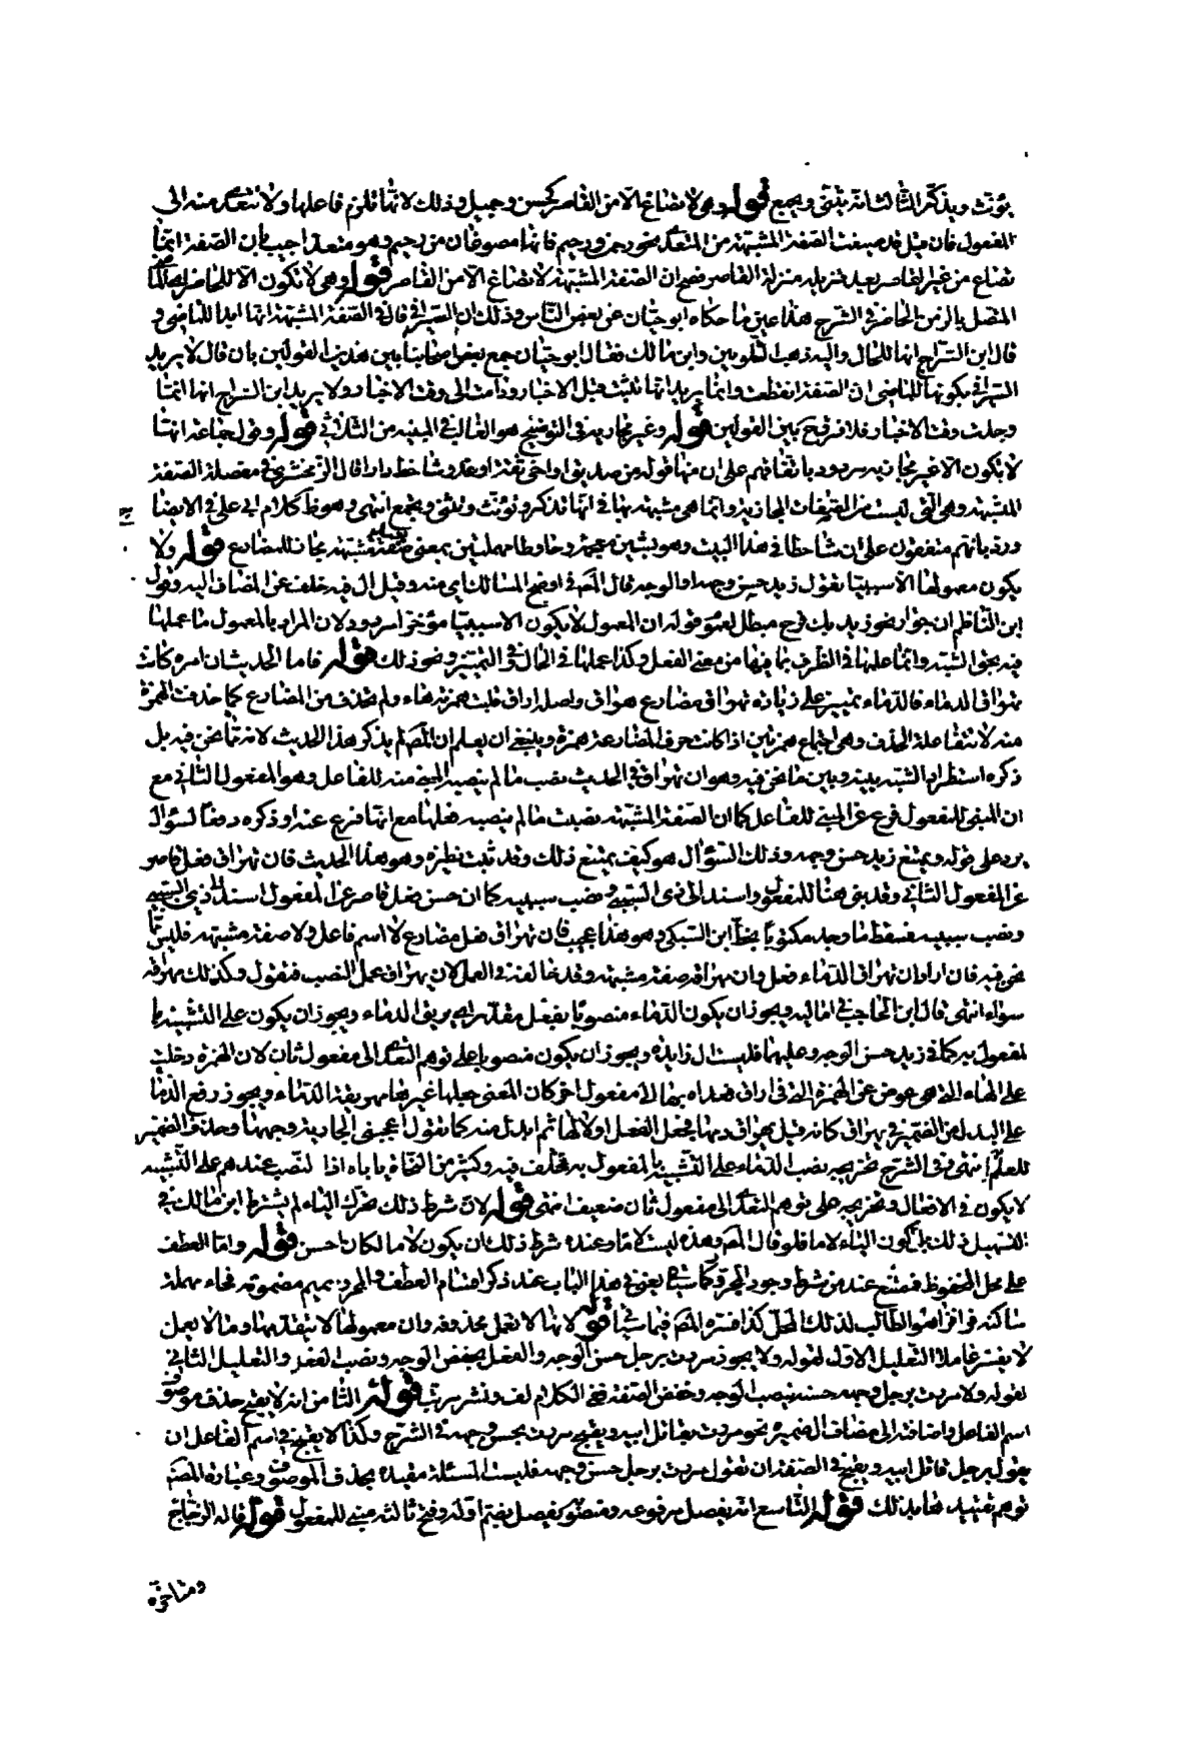 يؤنث ويذكر الثالث انه يثنى ويجمع قوله وهي لا تصاغ الا من القاصر كحسن وجميل وذلك لانها تلزم فاعلها ولا تتعدى منه الى
المفعول فان قيل قد صيغت الصفة المشبهة من المتعدى نحو رحمن ورحيم فانهما مصوغان من رحم وهو متعد اجيب بان الصفة انما
تصاغ من غير القاصر بعد تنزيله منزلة القاصر فصح ان الصفة المشبهة لا تصاغ الا من القاصر قوله وهي لا تكون الا للحاضر
المتصل بالزمن الحاضر في الشرح هذا عين ما حكاه ابو حيان عن بعض الناس وذلك ان السيرافي قال في الصفة المشبهة انها ابدا للماضي و
قال ابن السراج انها للحال واليه ذهب الشلوبين وابن مالك فقال ابو حيان جمع بعض اصحابنا بين هذين القولين بان قال لا يريد
السيرافي بكونها للماضي ان الصفة انقطعت وانما يريد انها ثبتت قبل الاخبار ودامت الى وقت الاخبار ولا يريد ابن السراج انها انما
وجدت وقت الاخبار فلا فرق بين القولين قوله وغير مجارية في التوضيح هو الغالب في المبنية من الثلاثي قوله وقول جماعة انها
لا تكون الا غير مجارية مردود باتفاقهم على ان منها قوله من صديق او اخي ثقة او عدو شاحط دارا قال الزمخشري في مفصله الصفة
المشبهة وهي التي ليست من الصفات الجارية وانما هي مشبهة بها في انها تذكر وتؤنث وتثنى وتجمع انتهى وهو ظ كلام ابي علي في الايضا
ورد بانهم متفقون على ان شاحطا في هذا البيت وهو بشين معجمة وحا وطا مهملتين بمعنى بعيد صفة مشبهة مجار للمضارع قوله ولا
يكون معمولها الا سببيا تقول زيد حسن وجهه او الوجه قال المصه في اوضح المسالك اي منه وقيل ال فيه خلف عن المضاف اليه وقول
ابن الناظم ان جواز نحو زيد بك فرح مبطل لعموم قوله ان المعمول لا يكون الا سببيا مؤخرا مردود لان المراد بالمعمول ما عملها
فيه بحق الشبه وانما عملها في الظرف بما فيها من معنى الفعل وكذا عملها في الحال وفي التمييز ونحو ذلك قوله فاما الحديث ان امرءة كانت
تهراق الدماء فالدماء تمييز على زيادة تهراق مضارع هراق واصله اراق قلبت همزته هاء ولم تحذف من المضارع كما حذفت الهمزة
منه لانتفاء علة الحذف وهي اجتماع همزتين اذا كانت حرف المضارعة همزة وينبغي ان يعلم ان المصه لم يذكر هذا الحديث لانه مما نحن فيه بل
ذكره استطرادا لشبه بينه وبين ما نحن فيه وهو ان تهراق في الحديث نصب ما لم ينصبه المبني منه للفاعل وهو المفعول الثاني مع
ان المبنى للمفعول فرع عن المبني للفاعل كما ان الصفة المشبهة نصبت ما لم ينصبه فعلها مع انها فرع عنه او ذكره دفعا لسؤال
يرد على قوله ويمتنع زيد حسن وجهه وذلك السؤال هو كيف يمتنع ذلك وقد ثبت نظيره وهو هذا الحديث فان تهراق فعل قاصر
عن المفعول الثاني وقد بني هنا للمفعول واسند الى ذي السببي ونصب سببيه كما ان حسن فعل قاصر عن المفعول اسند الى ذي السببي
ونصب سببيه فسقط ما وجد مكتوبا بخط ابن السبكي وهو هذا عجيب فان تهراق فعل مضارع لا اسم فاعل ولا صفة مشبهة فليس مما
نحن فيه فان اراد ان تهراق الدماء فعل وان مهراقة صفة مشبهة وقد خالفته في العمل لان يهراق عمل النصب فنقول وكذلك مهراقه
سواء انتهى قال ابن الحاجب في اماليه ويجوز ان يكون الدماء منصوبا بفعل مقدر اي يريق الدماء ويجوز ان يكون على التشبيه با
لمفعول به كما في زيد حسن الوجه وعليهما فليست ال زايدة ويجوز ان يكون منصوبا على توهم التعدى الى مفعول ثان لان الهمزة دخلت
على الهاء التي هي عوض عن الهمزة التي في اراق فعداه بها الى مفعول اخر كان المعنى جعلها غيرها مهريقة الدماء ويجوز رفع الدما
على البدل من الضمير في يهراق كانه قيل يهراق دمها فجعل الفعل اولا لها ثم ابدل منه كما تقول اعجبتني الجارية وجهها وحذف الضمير
للعلم انتهى وفي الشرح تخريجه نصب الدماء على التشبيه بالمفعول به مختلف فيه وكثير من النحاة ياباه اذا النصب عندهم على التشبيه
لا يكون في الافعال وتخريجه على توهم التعدى الى مفعول ثان ضعيف انتهى قوله لان شرط ذلك تحرك الياء لم يشترط ابن مالك في
التسهيل ذلك بل كون الياء لاما فلو قال المصه وهذه ليست لاما وعنده شرط ذلك ان يكون لاما لكان احسن قوله واما العطف
على محل المخفوظ فممتنع عند من شرط وجود المحرز كما سيأتي يعني في هذا الباب عند ذكر اقسام العطف والمحرز بميم مضمومة فحاء مهملة
ساكنة فراء فزاء هو الطالب لذلك المحل كذا فسره المصه فيما سيأتي قوله لانها لا تعمل محذوفة وان معمولها لا يتقدمها وما لا يعمل
لا يفسر عاملا التعليل الاول لقوله ولا يجوز مررت برجل حسن الوجه والفعل بخفض الوجه ونصب الفعل والتعليل الثاني
لقوله ولا مررت برجل وجهه حسنه بنصب الوجه وخفض الصفة ففي الكلام لف ونشر مرتب قوله الثامن انه لا يقبح حذف موصوف
اسم الفاعل واضافته الى مضاف الى ضميره نحو مررت بقاتل ابيه ويقبح مررت بحسن وجهه في الشرح وكذا لا يقبح في اسم الفاعل ان
يقول برجل قاتل ابيه ويقبح في الصفة ان تقول مررت برجل حسن وجهه فليست المسئلة مقيدة بحذف الموصوف وعبارة المصه
توهم تقييدها بذلك قوله التاسع انه يفصل مرفوعه ومنصوبه يفصل بضم اوله وفتح ثالثه مبني للمفعول قوله قاله الزجاج
ومتاخرة